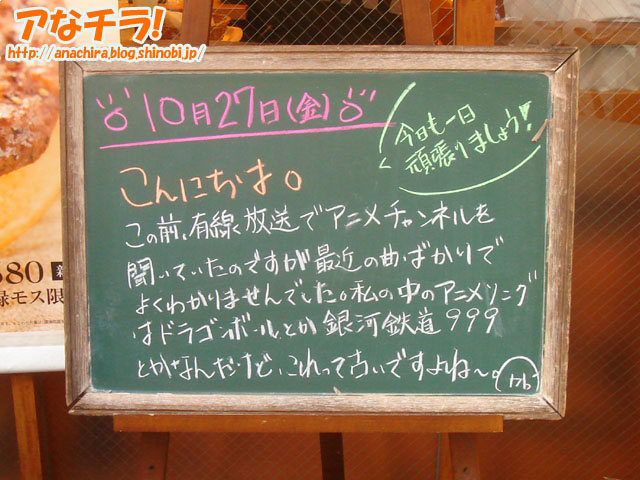 アなチラ!
http://anachira.blog.shinobi.jp/
10月27日(金)
今日も一日
頑張りましょう!
こんにちは。
この前、有線放送でアニメチャンネルを
聞いていたのですが最近の曲ばかりで
よくわかりませんでした。私の中のアニメソング
はドラゴンボールとか銀河鉄道999
とかなんだけど、これって古いですよね〜。
380
新
緑モス限